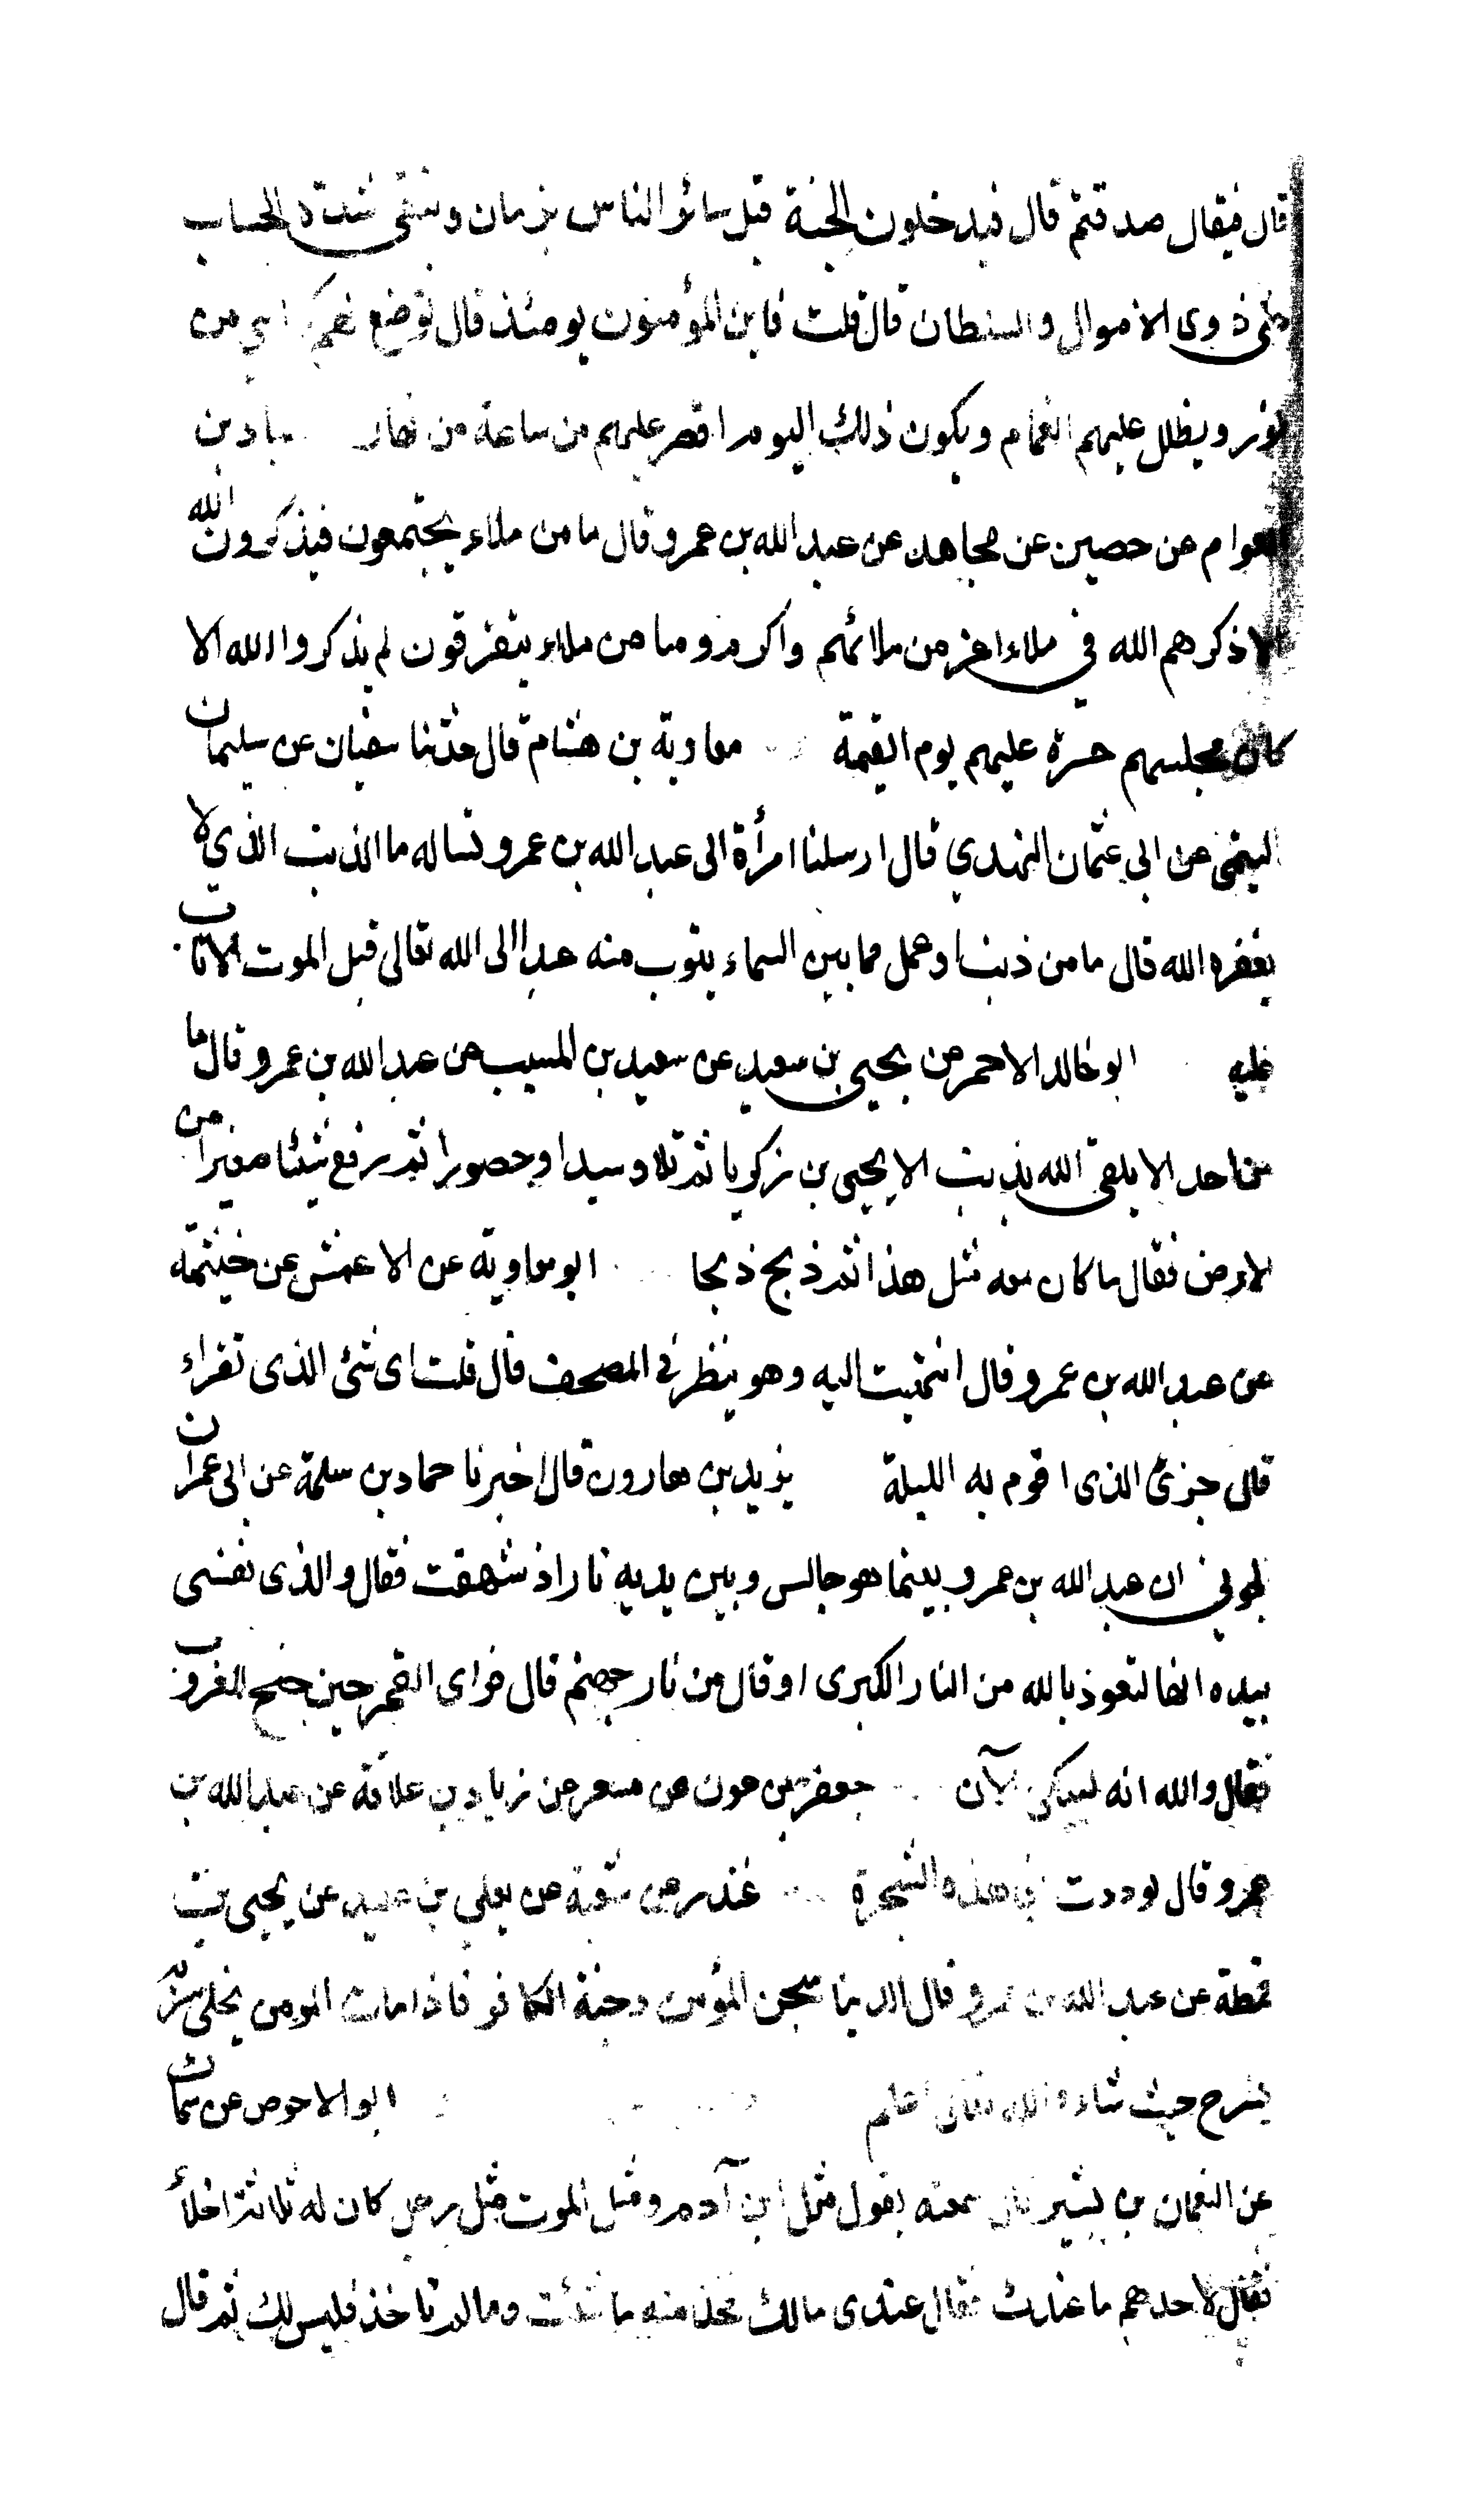 قال فيقال صدقتم قال فيدخلون الجنة قبل سائر الناس بزمان وتبقى شدة الحساب
على ذوى الاموال والسلطان قال قلت فاين المؤمنون يومئذ قال توضع لهم كراسي من
نور ويظلل عليهم الغمام ويكون ذلك اليوم اقصر عليهم من ساعة من نهار عباد بن
العوام عن حصين عن مجاهد عن عبد الله بن عمرو قال ما من ملاء يجتمعون فيذكرون الله
الا ذكرهم الله في ملاء اعز من ملائهم واكرم وما من ملاء يتفرقون لم يذكروا الله الا
كان مجلسهم حسرة عليهم يوم القيمة معاوية بن هشام قال حدثنا سفيان عن سليمان
التيمى عن ابى عثمان النهدي قال ارسلنا امرأة الى عبد الله بن عمرو تساله ما الذنب الذي لا
يغفره الله قال ما من ذنب او عمل مما بين السماء يتوب منه عبد الى الله تعالى قبل الموت الا تاب
عليه ابو خالد الاحمر عن يحيى بن سعيد عن سعيد بن المسيب عن عبد الله بن عمرو قال ما
من احد الا يلقى الله بذنب الا يحيى بن زكريا ثم تلا وسيدا وحصورا ثم رفع شيئا صغيرا من
الارض فقال ما كان معه مثل هذا ثم ذبح ذبحا ابو معاوية عن الاعمش عن خيثمة
عن عبد الله بن عمرو قال انتهيت اليه وهو ينظر في المصحف قال قلت اى شئ الذى تقراء
قال جزئ الذى اقوم به الليلة يزيد بن هارون قال اخبرنا حماد بن سلمة عن ابى عمران
الجوني ان عبد الله بن عمرو بينما هو جالس وبين يديه نار اذ شهقت فقال والذى نفسى
بيده انها لتعوذ بالله من النار الكبرى او قال من نار جهنم قال فراى القمر حين جنح للغروب
فقال والله انه ليبكى الآن جعفر بن عون عن مسعر عن زياد بن علاقة عن عبد الله بن
عمرو قال لوددت اني هذه الشجرة غندر عن شعبة عن يعلي بن عبيد عن يحيى بن
قمطة عن عبد الله بن عمرو قال الدنيا سجن المؤمن وجنة الكافر فاذا مات المومن يخلى سربه
يسرح حيث شاء والله تعالى اعلم ابو الاحوص عن سماك
عن النعمان بن بشير قال سمعته يقول مثل ابن آدم ومثل الموت مثل رجل كان له ثلاثة اخلاء
فقال لاحدهم ما عندك فقال عندى مالك فخذ منه ما شئت وما لم تاخذ فليس لك ثم قال